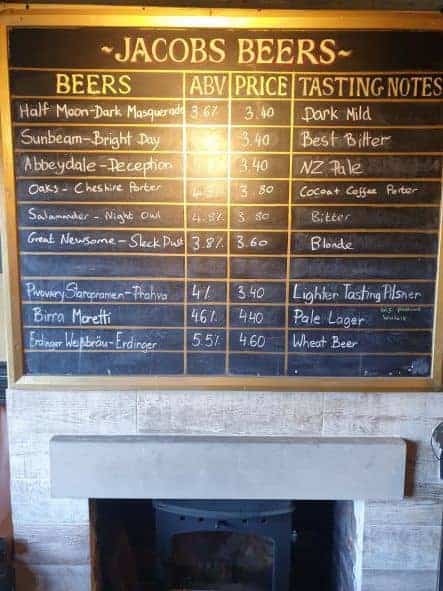 ~JACOBS BEERS~
BEERS ABV PRICE TASTING NOTES
Half Moon-Dark Masquerade 3.6% 3.40 Dark Mild
Sunbeam-Bright Day 3.40 Best Bitter
Abbeydale-Deception 3.40 NZ Pale
Oaks - Cheshire Porter 3.80 Cocoa + Coffee Porter
Salamander - Night Owl 4.8% 3.80 Bitter
Great Newsome - Sleck Dust 3.8% 3.60 Blonde
Pivovary Staropramen-Prahva 4% 3.40 Lighter Tasting Pilsner
Birra Moretti 4.6% 4.40 Pale Lager
Erdinger Weißbräu-Erdinger 5.5% 4.60 Wheat Beer